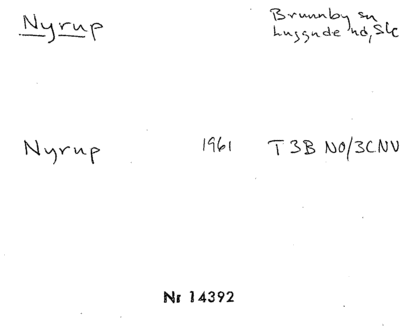 Nyrup
Brunnby sn
Luggude hd, Slc
Nyrup 1961 T 3B NO/3CNV
Nr 14392